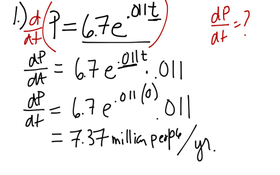 1.) d/dt (P = 6.7e^.011t) dP/dt = ?
dP/dt = 6.7e^.011t · .011
dP/dt = 6.7e^.011(0) · .011
= 7.37 million people/yr.